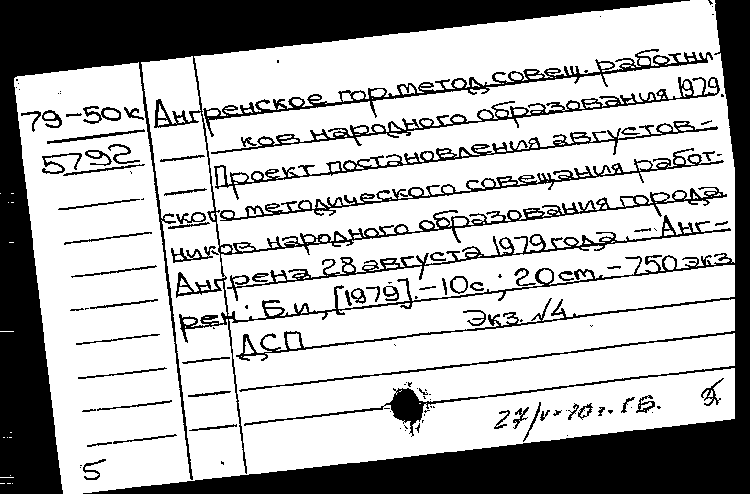 79-50к Ангренское гор. метод. совещ. работни-
ков народного образования. 1979.
5792
Проект постановления августов-
ского методического совещания работ-
ников народного образования города
Ангрена 28 августа 1979 года. - Анг-
рен: Б.и., [1979]. - 10с.; 20 см. - 750 экз
Экз. №4.
ДСП
Г.В.
5